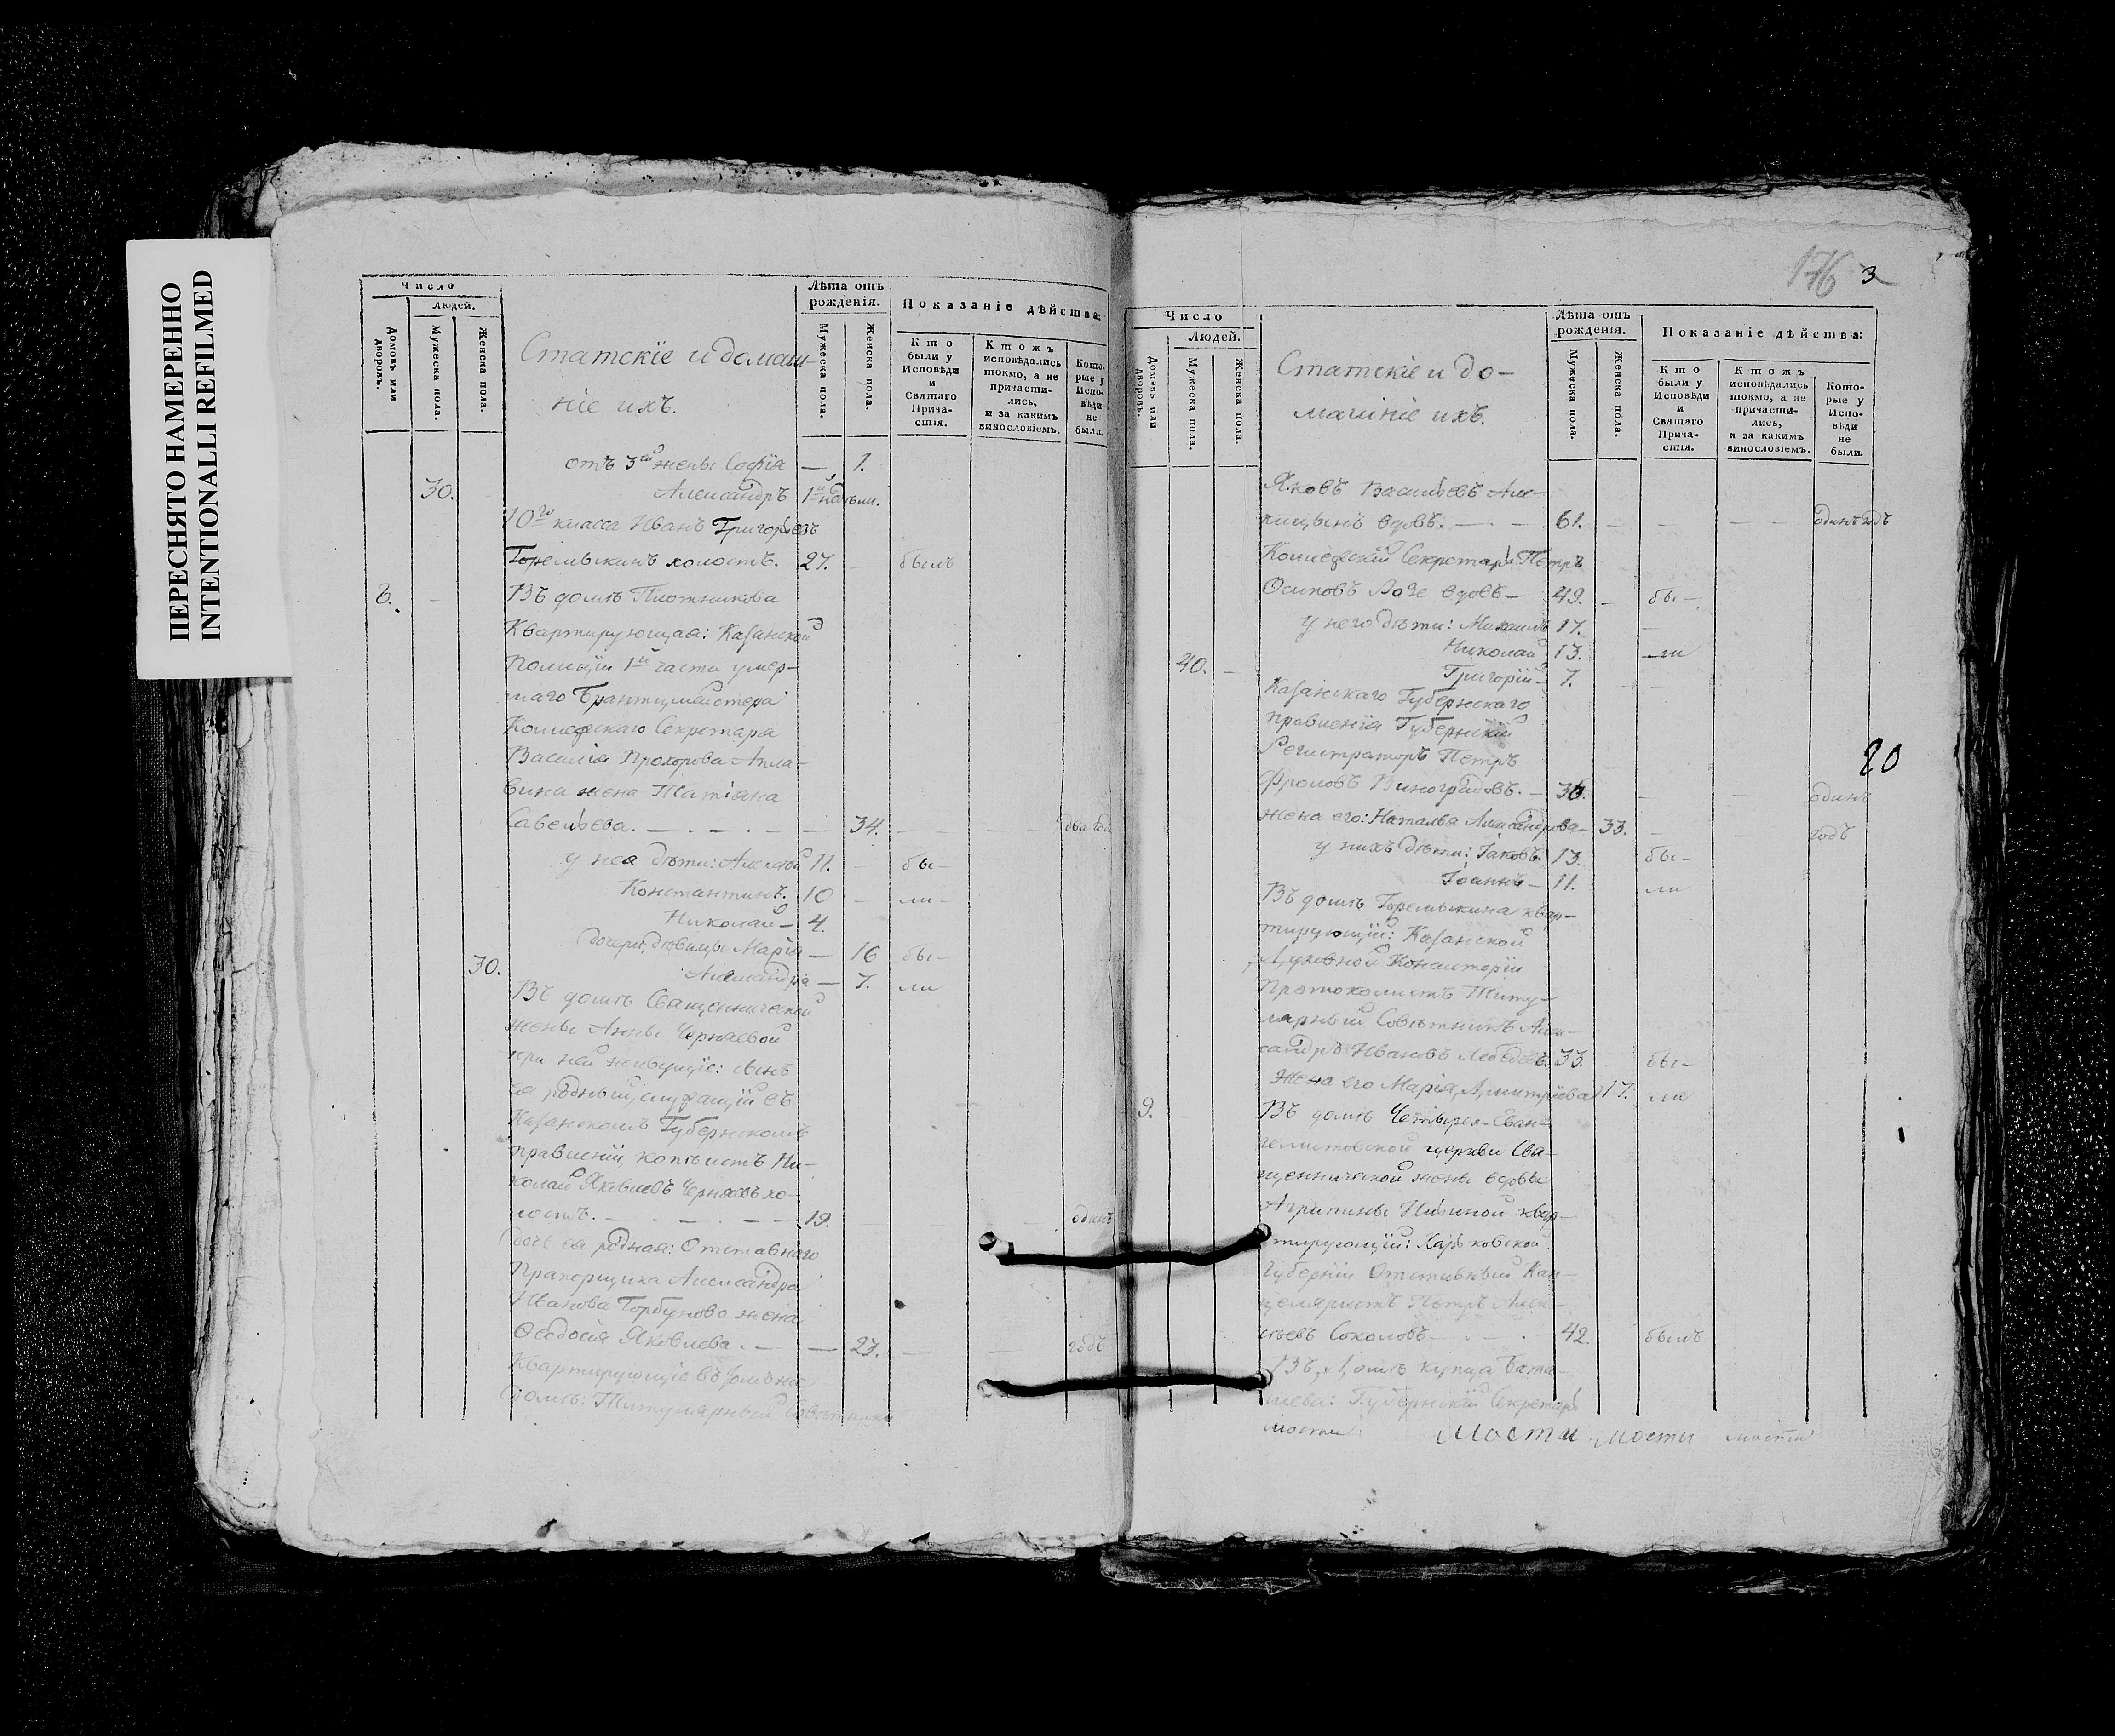 ПЕРЕСНЯТО НАМЕРЕННО
INTENTIONALLI REFILMED
Число
Людей.
Домовъ или дворовъ.
Мужеска пола.
Женска пола.
Статскіе и домаш-
ніе ихъ.
Лѣта отъ рожденія.
Мужеска пола.
Женска пола.
Показаніе дѣйства:
Кто были у Исповѣди и Святаго Прича- стія.
Ктожъ исповѣдались токмо, а не причасти- лись, и за какимъ винословіемъ.
Кото- рые у Испо- вѣди не были.
отъ 3ей жены Софія — 1.
30. Александръ
10го класса Иванъ Григорьевъ
Горемыкинъ холостъ. 27. - былъ
8. - Въ домѣ Плотникова
Квартирующая: Казанской
Полиціи 1й части умер-
шаго Брантмейстера
Коллежскаго Секретаря
Василія Прохорова
вина жена Татіана
Савельева. — 34. — два года
у нея дѣти: Алексѣй 11. - бы-
Константинъ. 10 - ли-
Николай — 4.
дочери, дѣвицы Марія — 16 бы-
30. Александра — 7. ли
Въ домѣ Священнической
жены Анны Черняевой
при ней живущіе: сынъ
ея родный, служащій въ
Казанскомъ Губернскомъ
правленіи копіистъ Ни-
колай Яковлевъ Черняевъ хо-
лостъ. — 19. одинъ
дочь ея родная: Отставнаго
Прапорщика Александра
Иванова Горбунова жена
Ѳеодосія Яковлева. — 23. — годъ
Квартирующіе въ
домѣ: Титулярный Совѣтникъ
176 3
Число
Людей.
Домовъ или дворовъ.
Мужеска пола.
Женска пола.
Статскіе и до-
машніе ихъ.
Лѣта отъ рожденія.
Мужеска пола.
Женска пола.
Показаніе дѣйства:
Кто были у Исповѣди и Святаго Прича- стія.
Ктожъ исповѣдались токмо, а не причасти- лись, и за какимъ винословіемъ.
Кото- рые у Испо- вѣди не были.
Яковъ Васильевъ
вдовъ. — 61. — одинъ годъ
Коллежскій Секретарь Петръ
Осиповъ вдовъ — 49. - бы-
у него дѣти: Михаилъ 17. —
Николай 13. — ли
40. - Григорій — 7.
Казанскаго Губернскаго
правленія Губернскій
Регистраторъ Петръ
20
Фроловъ Виноградовъ. — 36. — одинъ
жена его: Наталья Александрова — 33. — годъ
у нихъ дѣти: Іаковъ 13. бы-
Іоаннъ — 11. ли
Въ домѣ Горемыкина квар-
тирующій: Казанской
Духовной Консисторіи
Протоколистъ Титу-
лярный Совѣтникъ Алек-
сандръ Ивановъ Лебедевъ 33. - бы-
Жена его Марія Дмитріева 17. ли
9. - Въ домѣ Четырех-Еван-
гелистовской церкви Свя-
щеннической жены вдовы
Агрипины квар-
тирующій: Харьковской
Губерніи Отставный Кан-
целяристъ Петръ Алек-
сѣевъ Соколовъ — 42. былъ
Въ Домѣ купца
Губернскій Секретарь
мости мости мости